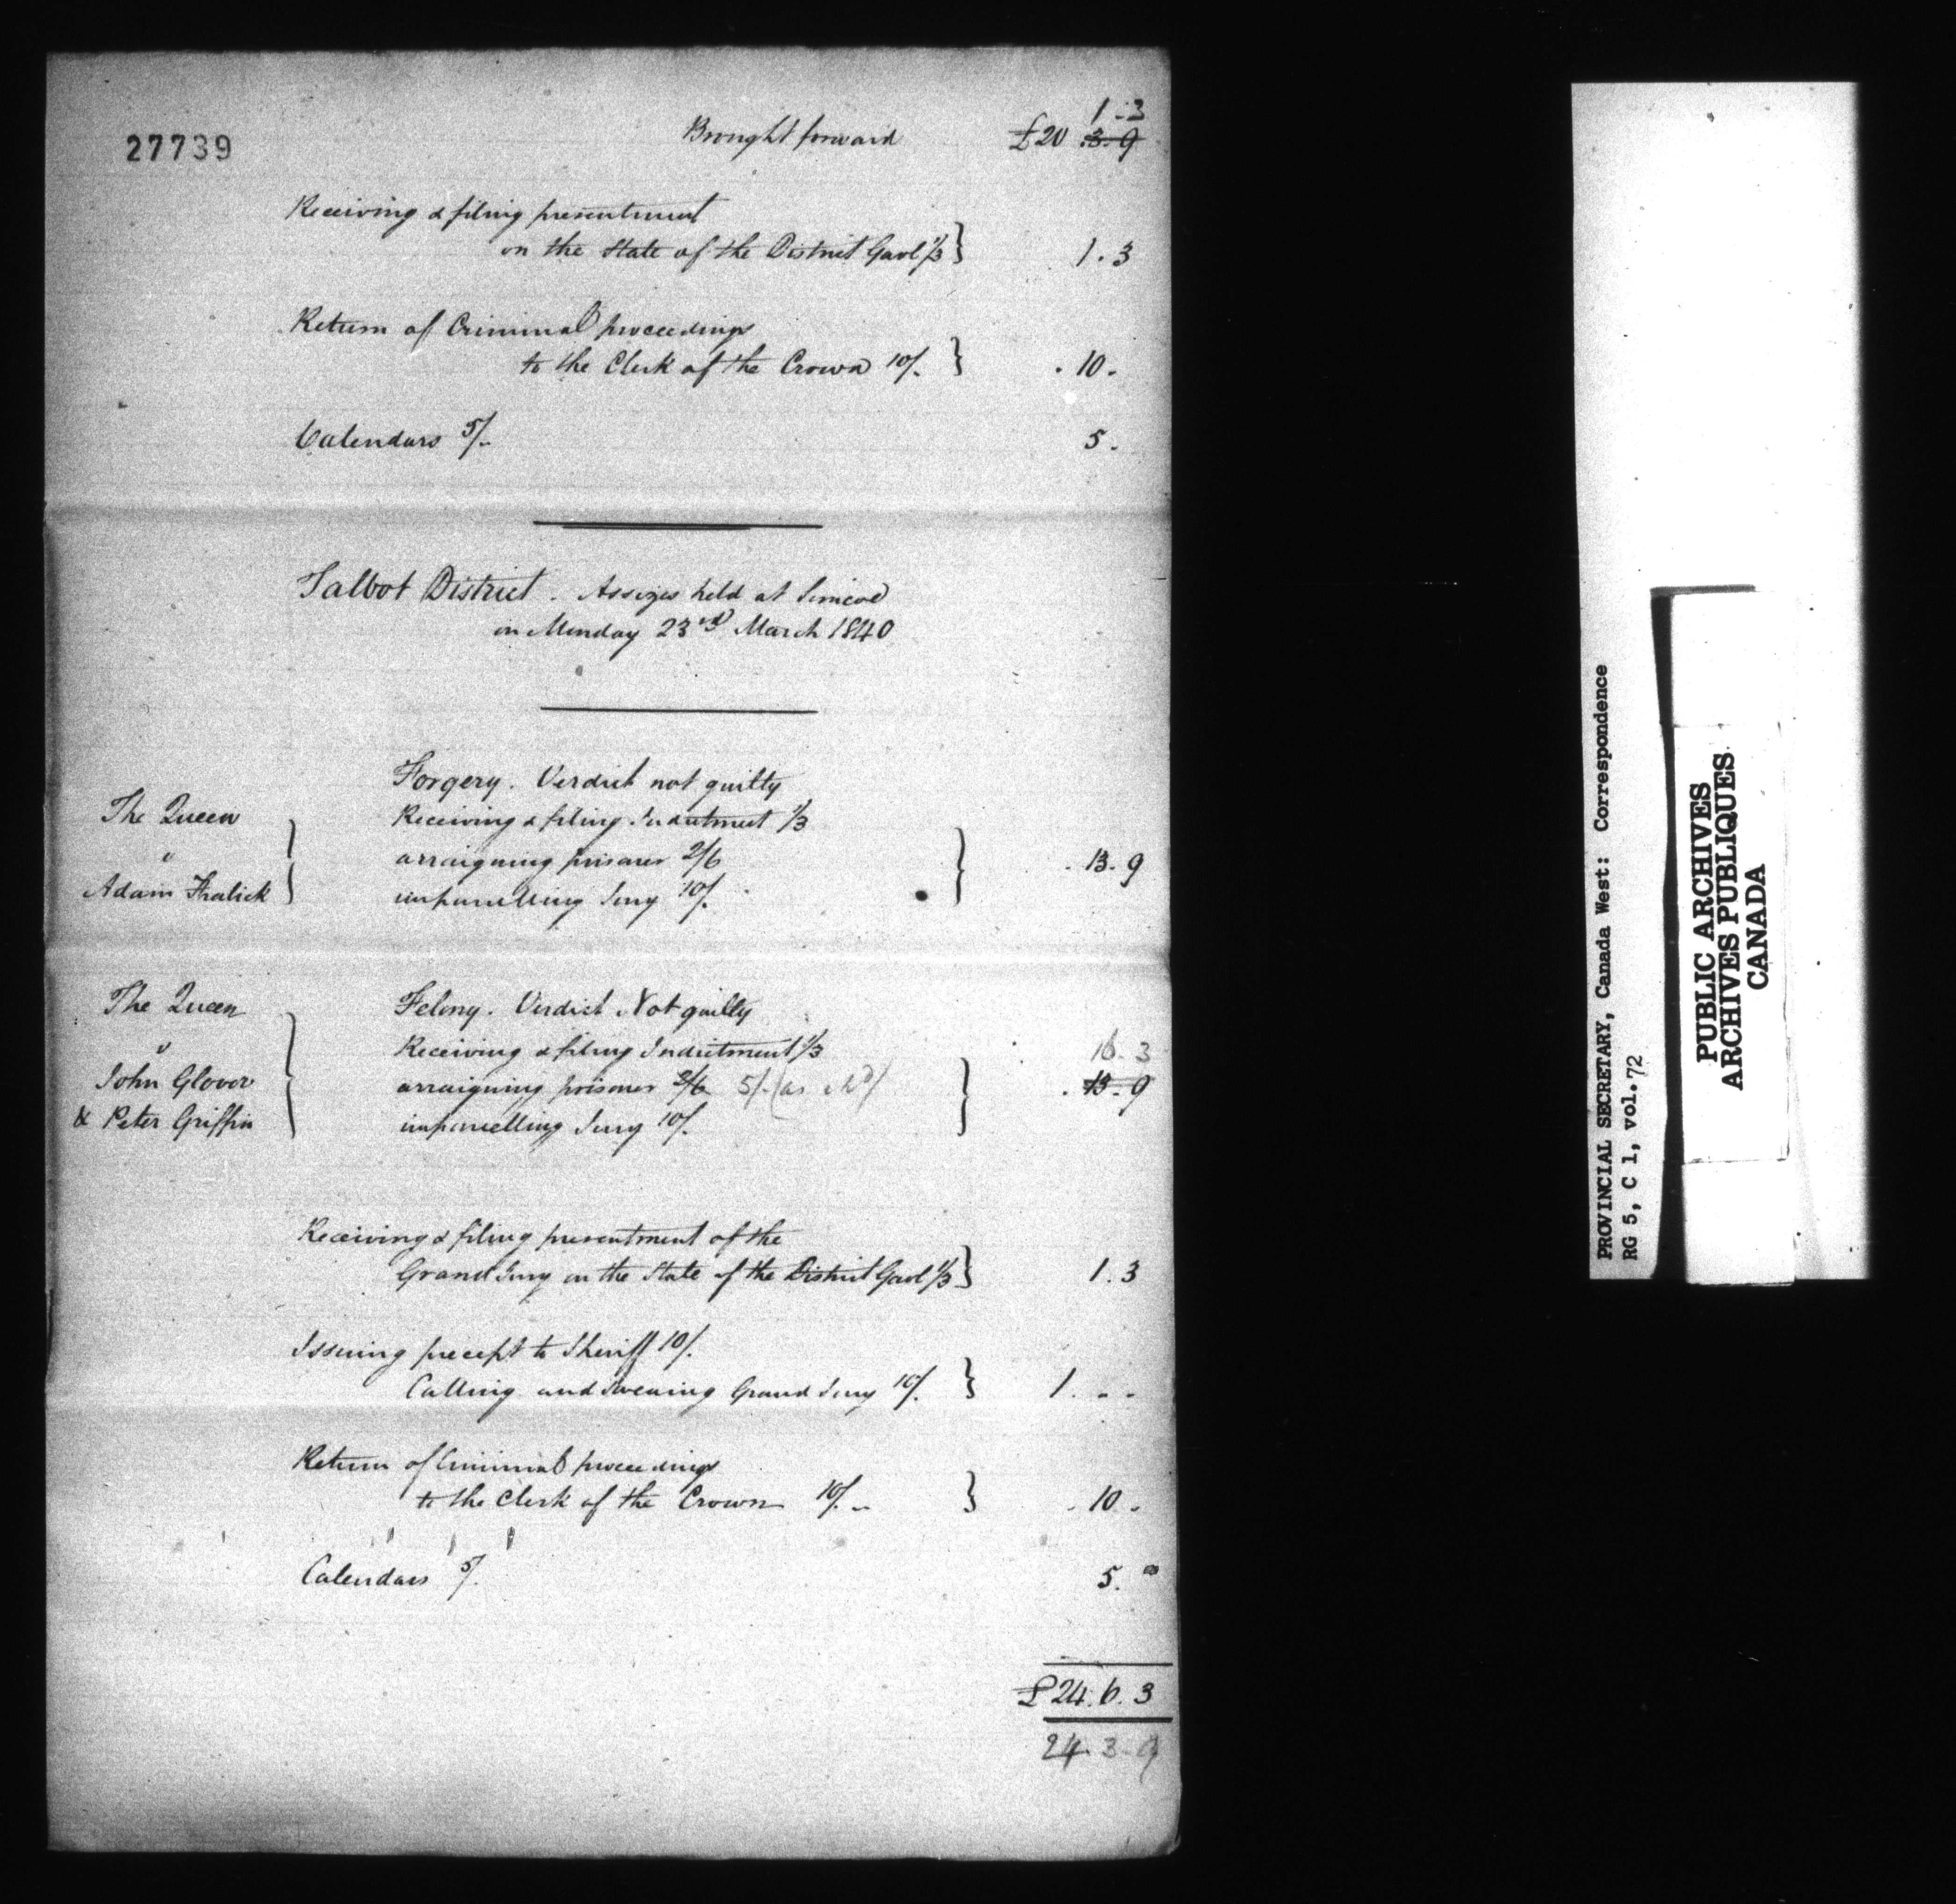 27739
Brought forward £20 3. 9
1 - 3
Receiving & filing presentment
on the State of the District Gaol 1/3 } 1. 3
Return of Criminal proceedings
to the Clerk of the Crown 10/. } . 10 .
Calendars 5/- 5 .
Talbot District . Assizes held at Simcoe
on Monday 23rd March 1840
Forgery. Verdict not guilty
The Queen Receiving & filing Indictment 1/3
" arraigning prisoner 2/6 . 13. 9
Adam Fralick impanelling Jury 10/.
The Queen Felony. Verdict Not guilty
v Receiving & filing Indictment 1/3 16. 3
John Glover arraigning prisoner 2/6 5/- (as . 13. 9
& Peter Griffin impanelling Jury 10/.
Receiving & filing presentment of the
Grand Jury on the State of the District Gaol 1/3 } 1. 3
Issuing precept to Sheriff 10/.
Calling and swearing Grand Jury 10/. } 1 . - -
Return of Criminal proceedings
to the Clerk of the Crown 10/. - } . 10 .
Calendars 5/. 5. "
£24. 6. 3
24. 3- 9
PROVINCIAL SECRETARY, Canada West: Correspondence
RG 5, C 1, vol. 72
PUBLIC ARCHIVES
ARCHIVES PUBLIQUES
CANADA